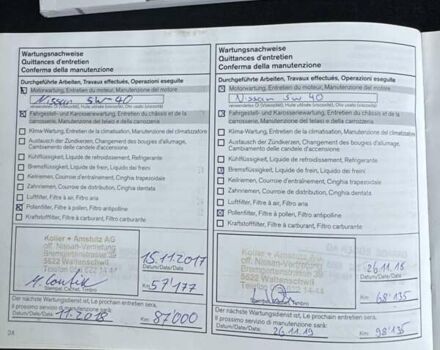 Wartungsnachweise
Quittances d'entretien
Conferma della manutenzione
Durchgeführte Arbeiten, Travaux effectués, Operazioni eseguite
Motorwartung, Entretien du moteur, Manutenzione del motore
Nissan 5W40
verwendetes Öl (Viskosität), Huile utilisée (viscosité), Olio usato (viscosità)
Fahrgestell- und Karosseriewartung, Entretien du châssis et de la
carrosserie, Manutenzione del telaio e della carrozzeria
Klima-Wartung, Entretien de la climatisation, Manutenzione del climatizzatore
Austausch der Zündkerzen, Changement des bougies d'allumage,
Cambiamento delle candele d'accensione
Kühlflüssigkeit, Liquide de refroidissement, Refrigerante
Bremsflüssigkeit, Liquide de frein, Liquido dei freni
Keilriemen, Courroie d'entraînement, Cinghia trapezoidale
Zahnriemen, Courroie de distribution, Cinghia dentata
Luftfilter, Filtre à air, Filtro aria
Pollenfilter, Filtre à pollen, Filtro antipolline
Kraftstofffilter, Filtre à carburant, Filtro carburante
Koller + Amstutz AG
off. Nissan-Vertretung
Bremgarterstrasse 39
5622 Waltenschwil
Telefon 056 622 14 44
Stempel, Cachet, Timbro
15.11.2017
Datum/Date/Data
Km: 57'177
Der nächste Wartungsdienst ist, Le prochain entretien sera,
Il prossimo servizio di manutenzione sarà:
11.2018
Datum/Date/Data
Km: 87'000
28
Wartungsnachweise
Quittances d'entretien
Conferma della manutenzione
Durchgeführte Arbeiten, Travaux effectués, Operazioni eseguite
Motorwartung, Entretien du moteur, Manutenzione del motore
Nissan 5W40
verwendetes Öl (Viskosität), Huile utilisée (viscosité), Olio usato (viscosità)
Fahrgestell- und Karosseriewartung, Entretien du châssis et de la
carrosserie, Manutenzione del telaio e della carrozzeria
Klima-Wartung, Entretien de la climatisation, Manutenzione del climatizzatore
Austausch der Zündkerzen, Changement des bougies d'allumage,
Cambiamento delle candele d'accensione
Kühlflüssigkeit, Liquide de refroidissement, Refrigerante
Bremsflüssigkeit, Liquide de frein, Liquido dei freni
Keilriemen, Courroie d'entraînement, Cinghia trapezoidale
Zahnriemen, Courroie de distribution, Cinghia dentata
Luftfilter, Filtre à air, Filtro aria
Pollenfilter, Filtre à pollen, Filtro antipolline
Kraftstofffilter, Filtre à carburant, Filtro carburante
Koller + Amstutz AG
off. Nissan-Vertretung
Bremgarterstrasse 39
5622 Waltenschwil
Telefon 056 622 14 44
Stempel, Cachet, Timbro
26.11.18
Datum/Date/Data
Km: 68'135
Der nächste Wartungsdienst ist, Le prochain entretien sera,
Il prossimo servizio di manutenzione sarà:
26.11.19
Datum/Date/Data
Km: 98'135